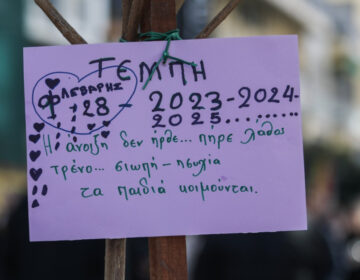 ΤΕΜΠΗ
ΦΛΕΒΑΡΗΣ
28 - 2023-2024-
2025......
Η άνοιξη δεν ήρθε... πήρε λάθος
τρένο... σιωπή - ησυχία
τα παιδιά κοιμούνται.